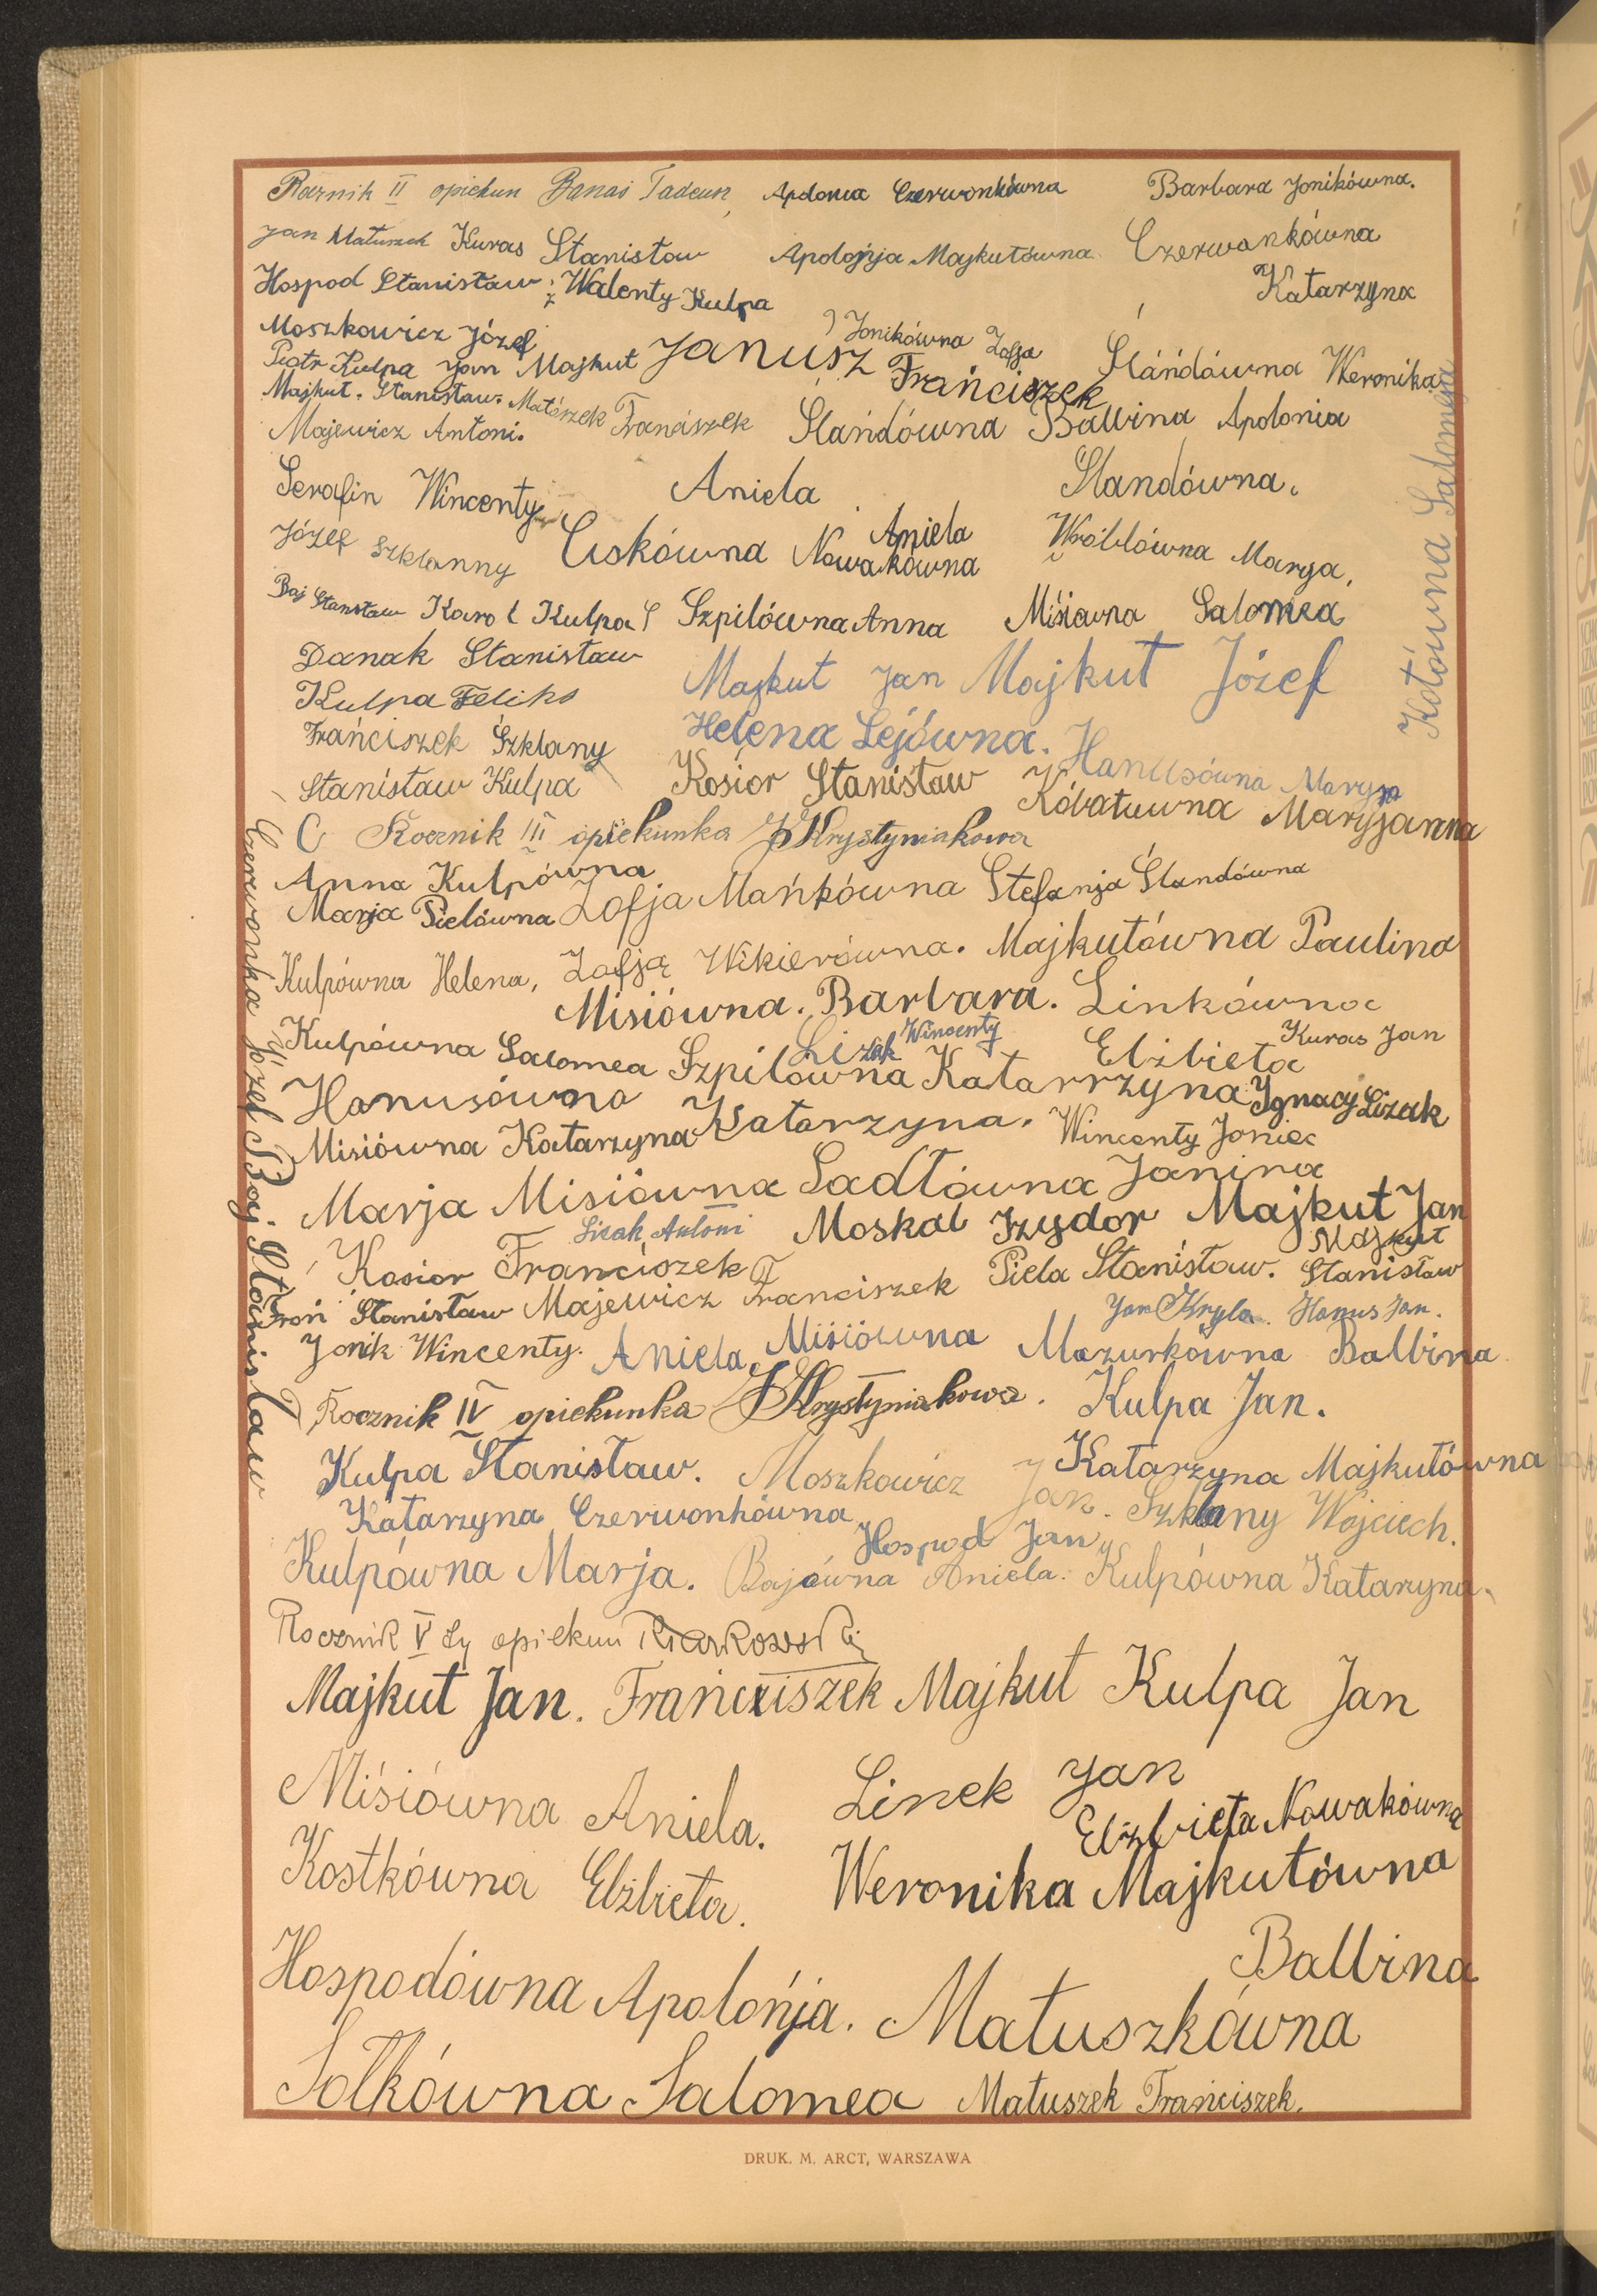 Rocznik II opiekun Banaś Tadeusz, Apolonia Czerwonkówna Barbara Jonikówna.
Jan Matuszek Kuras Stanisław Apolojja Majkutówna Czerwonkówna
Hospod Stanisław; Walenty Kulpa Katarzyna
Moszkowicz Józef Jonikówna Zofja
Piotr Kulpa Jan Majkut Janusz Franciszek Ślándówna Weronika
Majkut. Stanisław. Matuszek Franciszek
Majewicz Antoni. Ślańdówna Balbina Apolonia
Serafin Wincenty Aniela Slandówna.
Józef Szklanny Cuskówna Nowakówna Aniela Wróblówna Marya,
Baj Stanisław Karol Kulpa Szpilówna Anna Misiówna Salomea
Danak Stanisław Majkut Jan Majkut Józef
Kulpa Feliks
Frańciszek Szklany Helena Lejówna. Hanusówna Maryja
Stanisław Kulpa Kosior Stanisław Kóbatuwna Maryjanna
Kotówna Salomeja
Rocznik III opiekunka J Krystyniakowa
Anna Kulpówna
Marja Pielówna Zofja Mańkówna Stefanja Ślandówna
Kulpówna Helena, Zofja Wikierówna. Majkutówna Paulina
Misiówna. Barbara. Linkówna
Kulpówna Salomea Lizak Wincenty Elżbieta Kuras Jan
Szpilówna Katarrzyna Ignacy Lizak
Hanusówna Katarzyna.
Misiówna Katarzyna Wincenty Joniec
Marja Misiówna Sadłówna Janina
Lizak Antoni Moskal Izydor Majkut Jan
Kosior Franciszek Majkut Stanisław
Troń Stanisław Majewicz Franciszek Piela Stanisław.
Jan Kryla. Hanus Jan.
Jonik Wincenty. Aniela Misiówna Mazurkówna Balbina
Czerwonka Józef Baj. Stanisław
Rocznik IV opiekunka J Krystyniakowa. Kulpa Jan.
Kulpa Stanisław. Moszkowicz Jan. Katarzyna Majkutówna
Katarzyna Czerwonkówna Szklany Wojciech.
Hospod Jan
Kulpówna Marja. Bajówna Aniela. Kulpówna Katarzyna.
Rocznik V ty opiekun
Majkut Jan. Frańciszek Majkut Kulpa Jan
Miśiówna Aniela. Linek Jan
Elżbieta Nowakówna
Kostkówna Elżbieta. Weronika Majkutówna
Hospodówna Apolońja. Matuszkówna Balbina
Sołkówna Salomea Matuszek Franciszek.
DRUK. M. ARCT, WARSZAWA